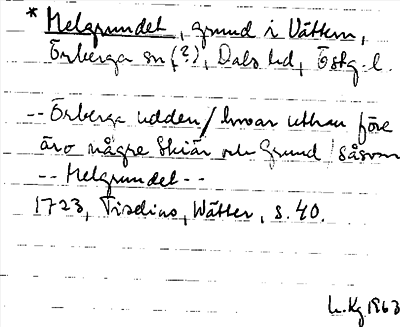 * Melgrundet, grund i Vättern,
Örberga sn (?), Dals hd, Östg. l.
-- Örberga udden / hwar uthan före
äro någre Skiär och Grund / såsom
-- Melgrundet --
1723, Tiselius, Wätter, s. 40.
L. Kg 1963